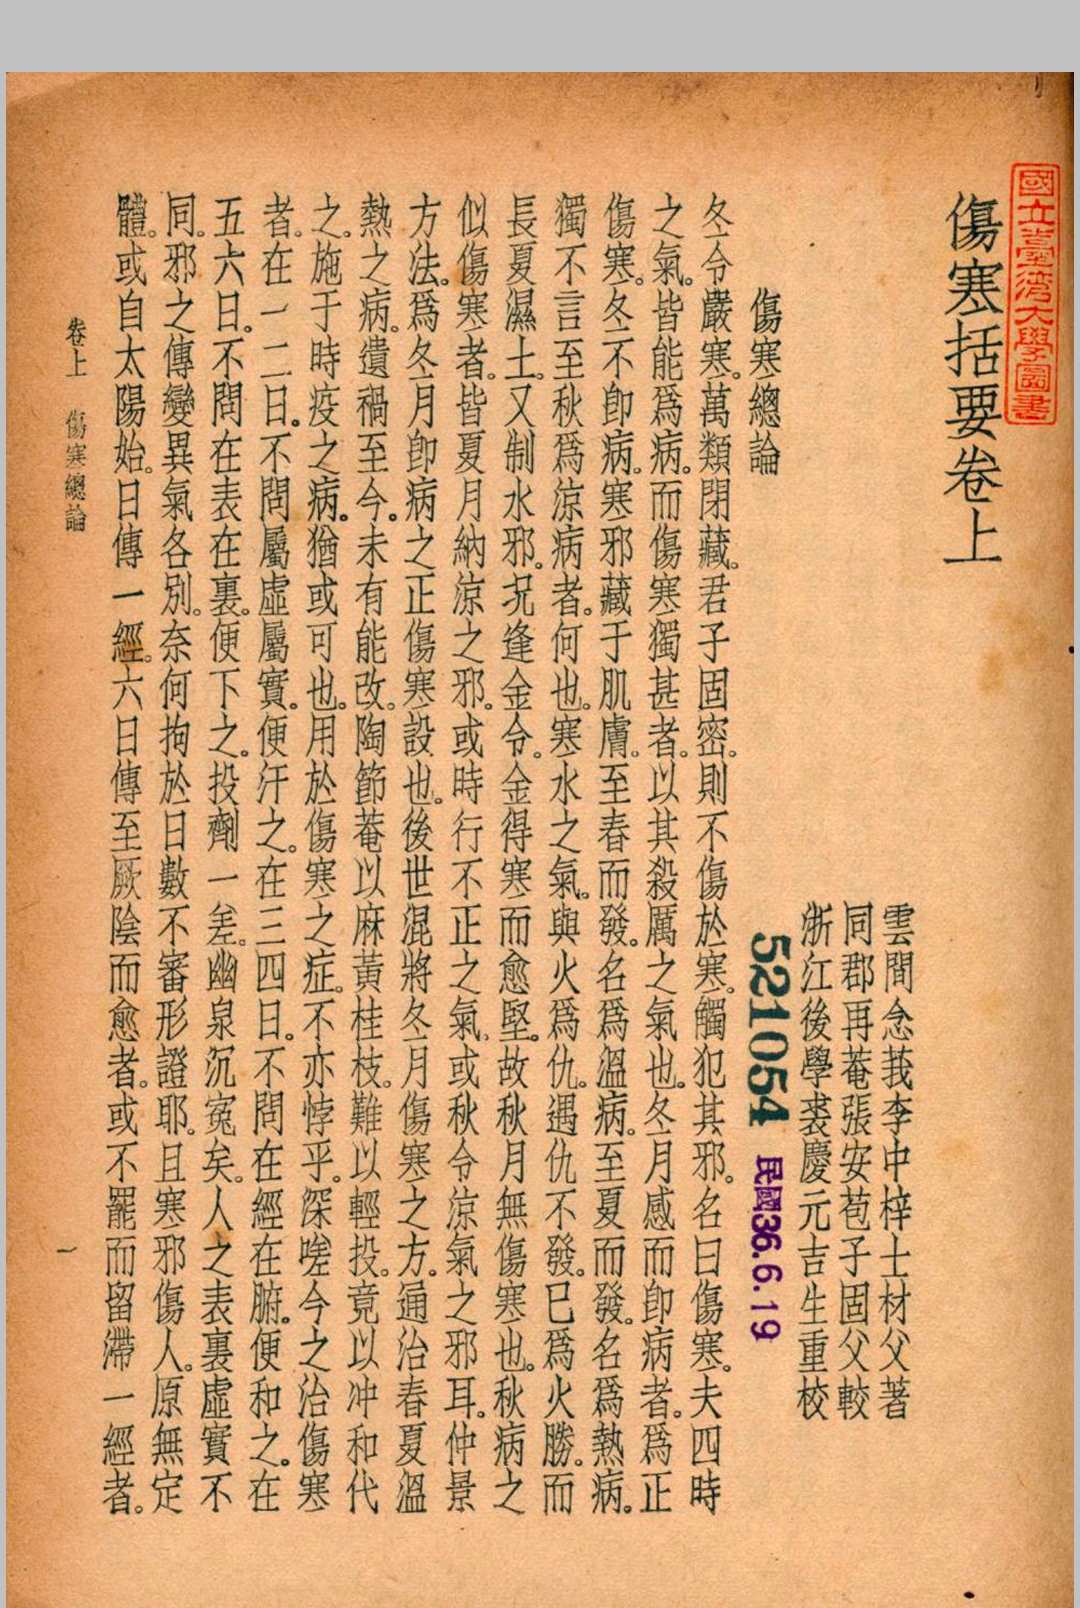 國立臺灣大學圖書
傷寒括要卷上
雲間念莪李中梓士材父著
同郡再菴張安苞子固父較
浙江後學裘慶元吉生重校
521054 民國36.6.19
傷寒總論
冬令嚴寒。萬類閉藏。君子固密。則不傷於寒。觸犯其邪。名曰傷寒。夫四時
之氣。皆能爲病。而傷寒獨甚者。以其殺厲之氣也。冬月感而卽病者。爲正
傷寒。冬不卽病。寒邪藏于肌膚。至春而發。名爲溫病。至夏而發。名爲熱病。
獨不言至秋爲涼病者。何也。寒水之氣。與火爲仇。遇仇不發。巳爲火勝。而
長夏濕土。又制水邪。況逢金令。金得寒而愈堅。故秋月無傷寒也。秋病之
似傷寒者。皆夏月納涼之邪。或時行不正之氣、或秋令涼氣之邪耳。仲景
方法。爲冬月卽病之正傷寒設也。後世混將冬月傷寒之方。通治春夏溫
熱之病。遺禍至今。未有能改。陶節菴以麻黃桂枝。難以輕投。竟以冲和代
之。施于時疫之病。猶或可也。用於傷寒之症。不亦悖乎。深嗟今之治傷寒
者。在一二日。不問屬虛屬實。便汗之。在三四日。不問在經在腑。便和之。在
五六日。不問在表在裏。便下之。投劑一差。幽泉沉寃矣。人之表裏虛實不
同。邪之傳變異氣各別。奈何拘於日數不審形證耶。且寒邪傷人。原無定
體。或自太陽始。日傳一經。六日傳至厥陰而愈者。或不罷而留滯一經者。
卷上 傷寒總論
一